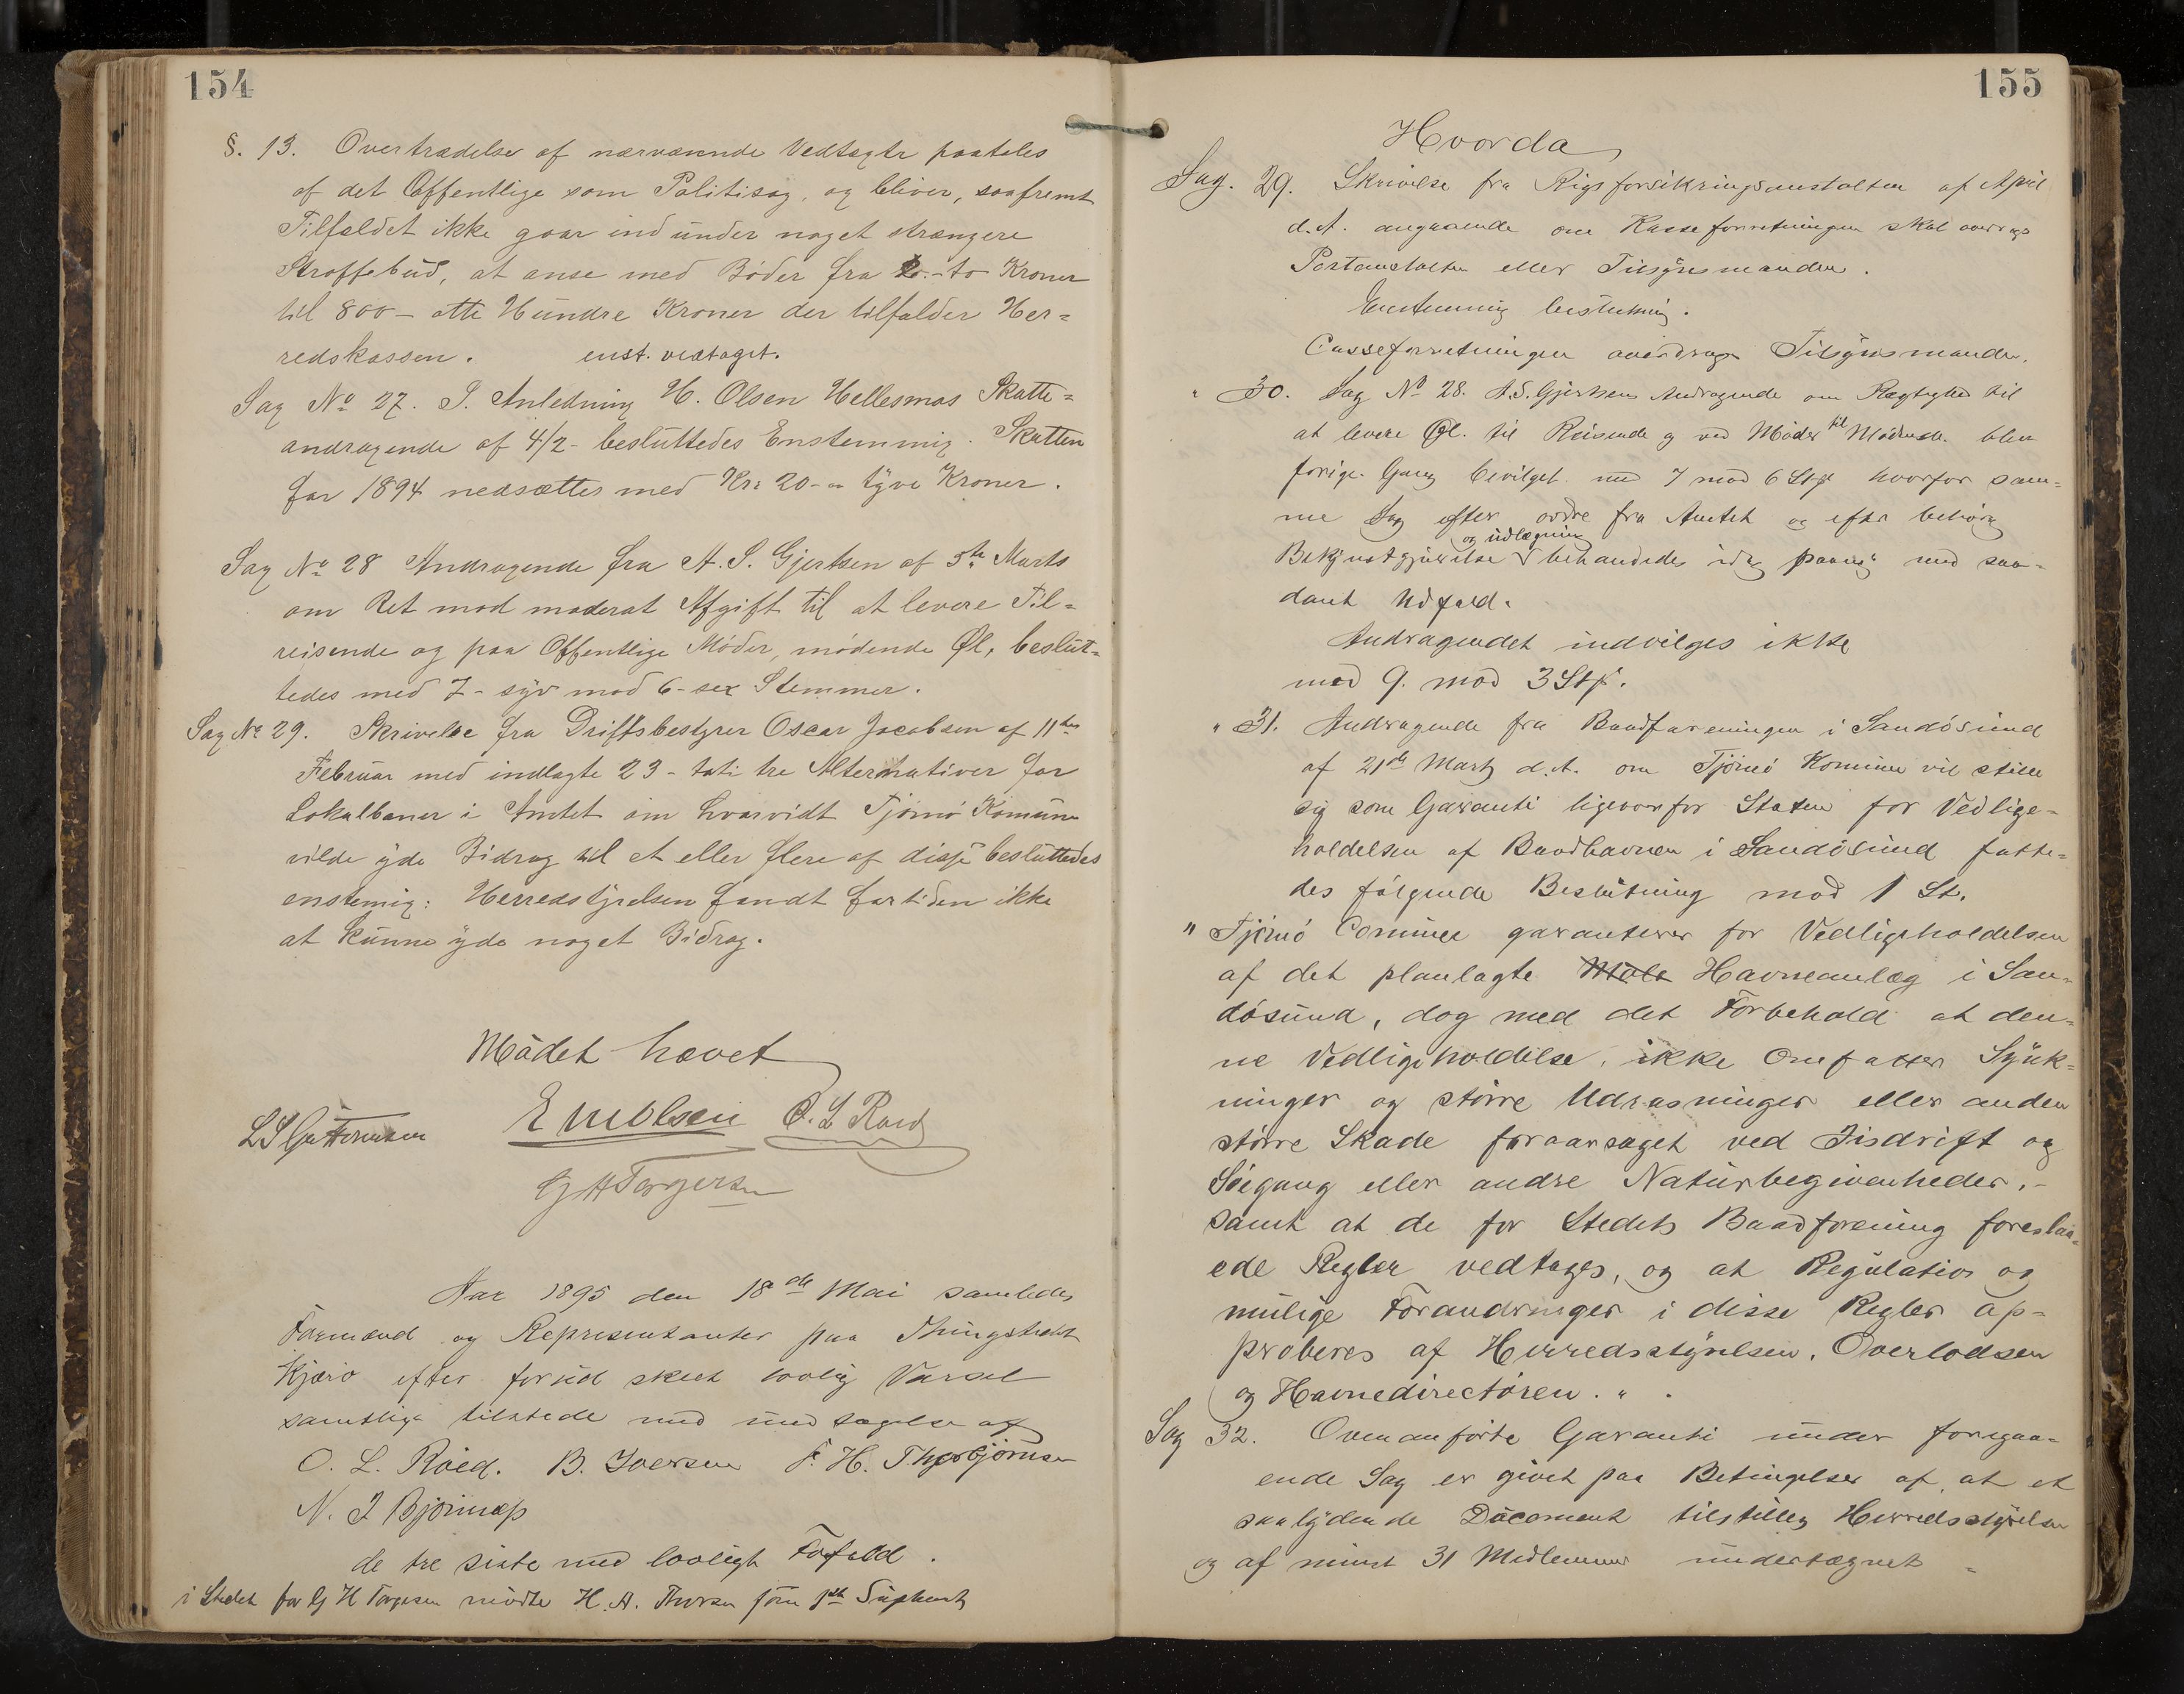 154
§. 13. Overtrædelse af nærværende Vedtægter paatales
af det Offentlige som Politisag, og bliver, saafremt
Tilfældet ikke gaar ind under noget strængere
Straffebud, at anse med Bøder fra 2.- to Kroner
til 800 - otte Hundre Kroner der tilfalder Her=
redskassen. enst. vedtaget.
Sag No 27. I Anledning H. Olsen Hellesmos Skatte=
andragende af 4/2 - besluttedes Enstemmig. Skatten
for 1894 nedsættes med Kr: 20 - tyve Kroner.
Sag No 28 Andragende fra A. S. Gjertsen af 5te Marts
om Ret mod moderat Afgift til at levere Til=
reisende og paa Offentlige Møder, mødende Øl, beslut=
tedes med 7 - syv mod 6 - sex Stemmer.
Sag No 29. Skrivelse fra Driftsbestyrer Oscar Jacobsen af 11te
Februar med indlagte 23 - toti tre Alternativer for
Lokalbaner i Amtet om hvorvidt Tjømø Komune
vilde yde Bidrag til et eller flere af disse besluttedes
enstemig: Herredstyrelsen fandt fortiden ikke
at kunne yde noget Bidrag.
Mødet hævet
L S Guttormsen E M Olsen O. L Røed
G H Torgersen
Aar 1895 den 18de Mai samledes
Formænd og Representanter paa Thingstedet
Kjærø efter forud skeet lovlig Varsel
samtlige tilstede med undtagelse af
O. L. Røed. B. Iversen F. H. Thorbjørnsen
N. I Bjørnæs
de tre siste med lovligt Forfald.
i Stedet for G H Torgersen mødte H. A. Thorsen som 1ste Supleant
155
Hvorda
Sag. 29. Skrivelse fra Rigsforsikringsanstalten af April
d.A. angaaende om Kasseforretningen skal overdrages
Postanstalten eller Tilsynsmanden.
Enstemmig beslutning.
Casseforretningen overdrages Tilsynsmanden.
" 30. Sag No 28. A.S. Gjertsens Andragende om Rettighed til
at levere Øl. til Reisende og ved Møder til Mødende. blev
forige Gang bevilget med 7 mod 6 St. hvorfor sam=
me Sag efter ordre fra Amtet og efter behørig
Bekjendtgjørelse og udlægning behandledes idag paany med saa=
dant Udfald.
Andragendet indvilges ikke
med 9. mod 3 St.
" 31. Andragende fra Baadforeningen i Sandøsund
af 21de Marts d.A. om Tjømø Komune vil stille
sig som Garanti ligeoverfor Staten for Vedlige=
holdelsen af Baadhavnen i Sandøsund fatte=
des følgende Beslutning mod 1 St.
" Tjømø Comune garanterer for Vedligeholdelsen
af det planlagte Molo Havneanlæg i San=
døsund, dog med det Forbehold at den=
ne Vedligeholdelse, ikke omfatter Synk=
ninger og større Udrasninger eller anden
større Skade foraarsaget ved Isdrift og
Søgang eller andre Naturbegivenheder, -
samt at de for Stedets Baadforening foreslaa=
ede Regler vedtages, og at Regulativ og
mulige Forandringer i disse Regler ap=
proberes af Herredsstyrelsen, Overlodsen
og Havnedirectøren. "
Sag 32. Ovenanførte Garanti under foregaa=
ende Sag er givet paa Betingelse af, at et
saalydende Document tilstilles Herredsstyrelsen
og af mindst 31 Medlemmer undertegnet =